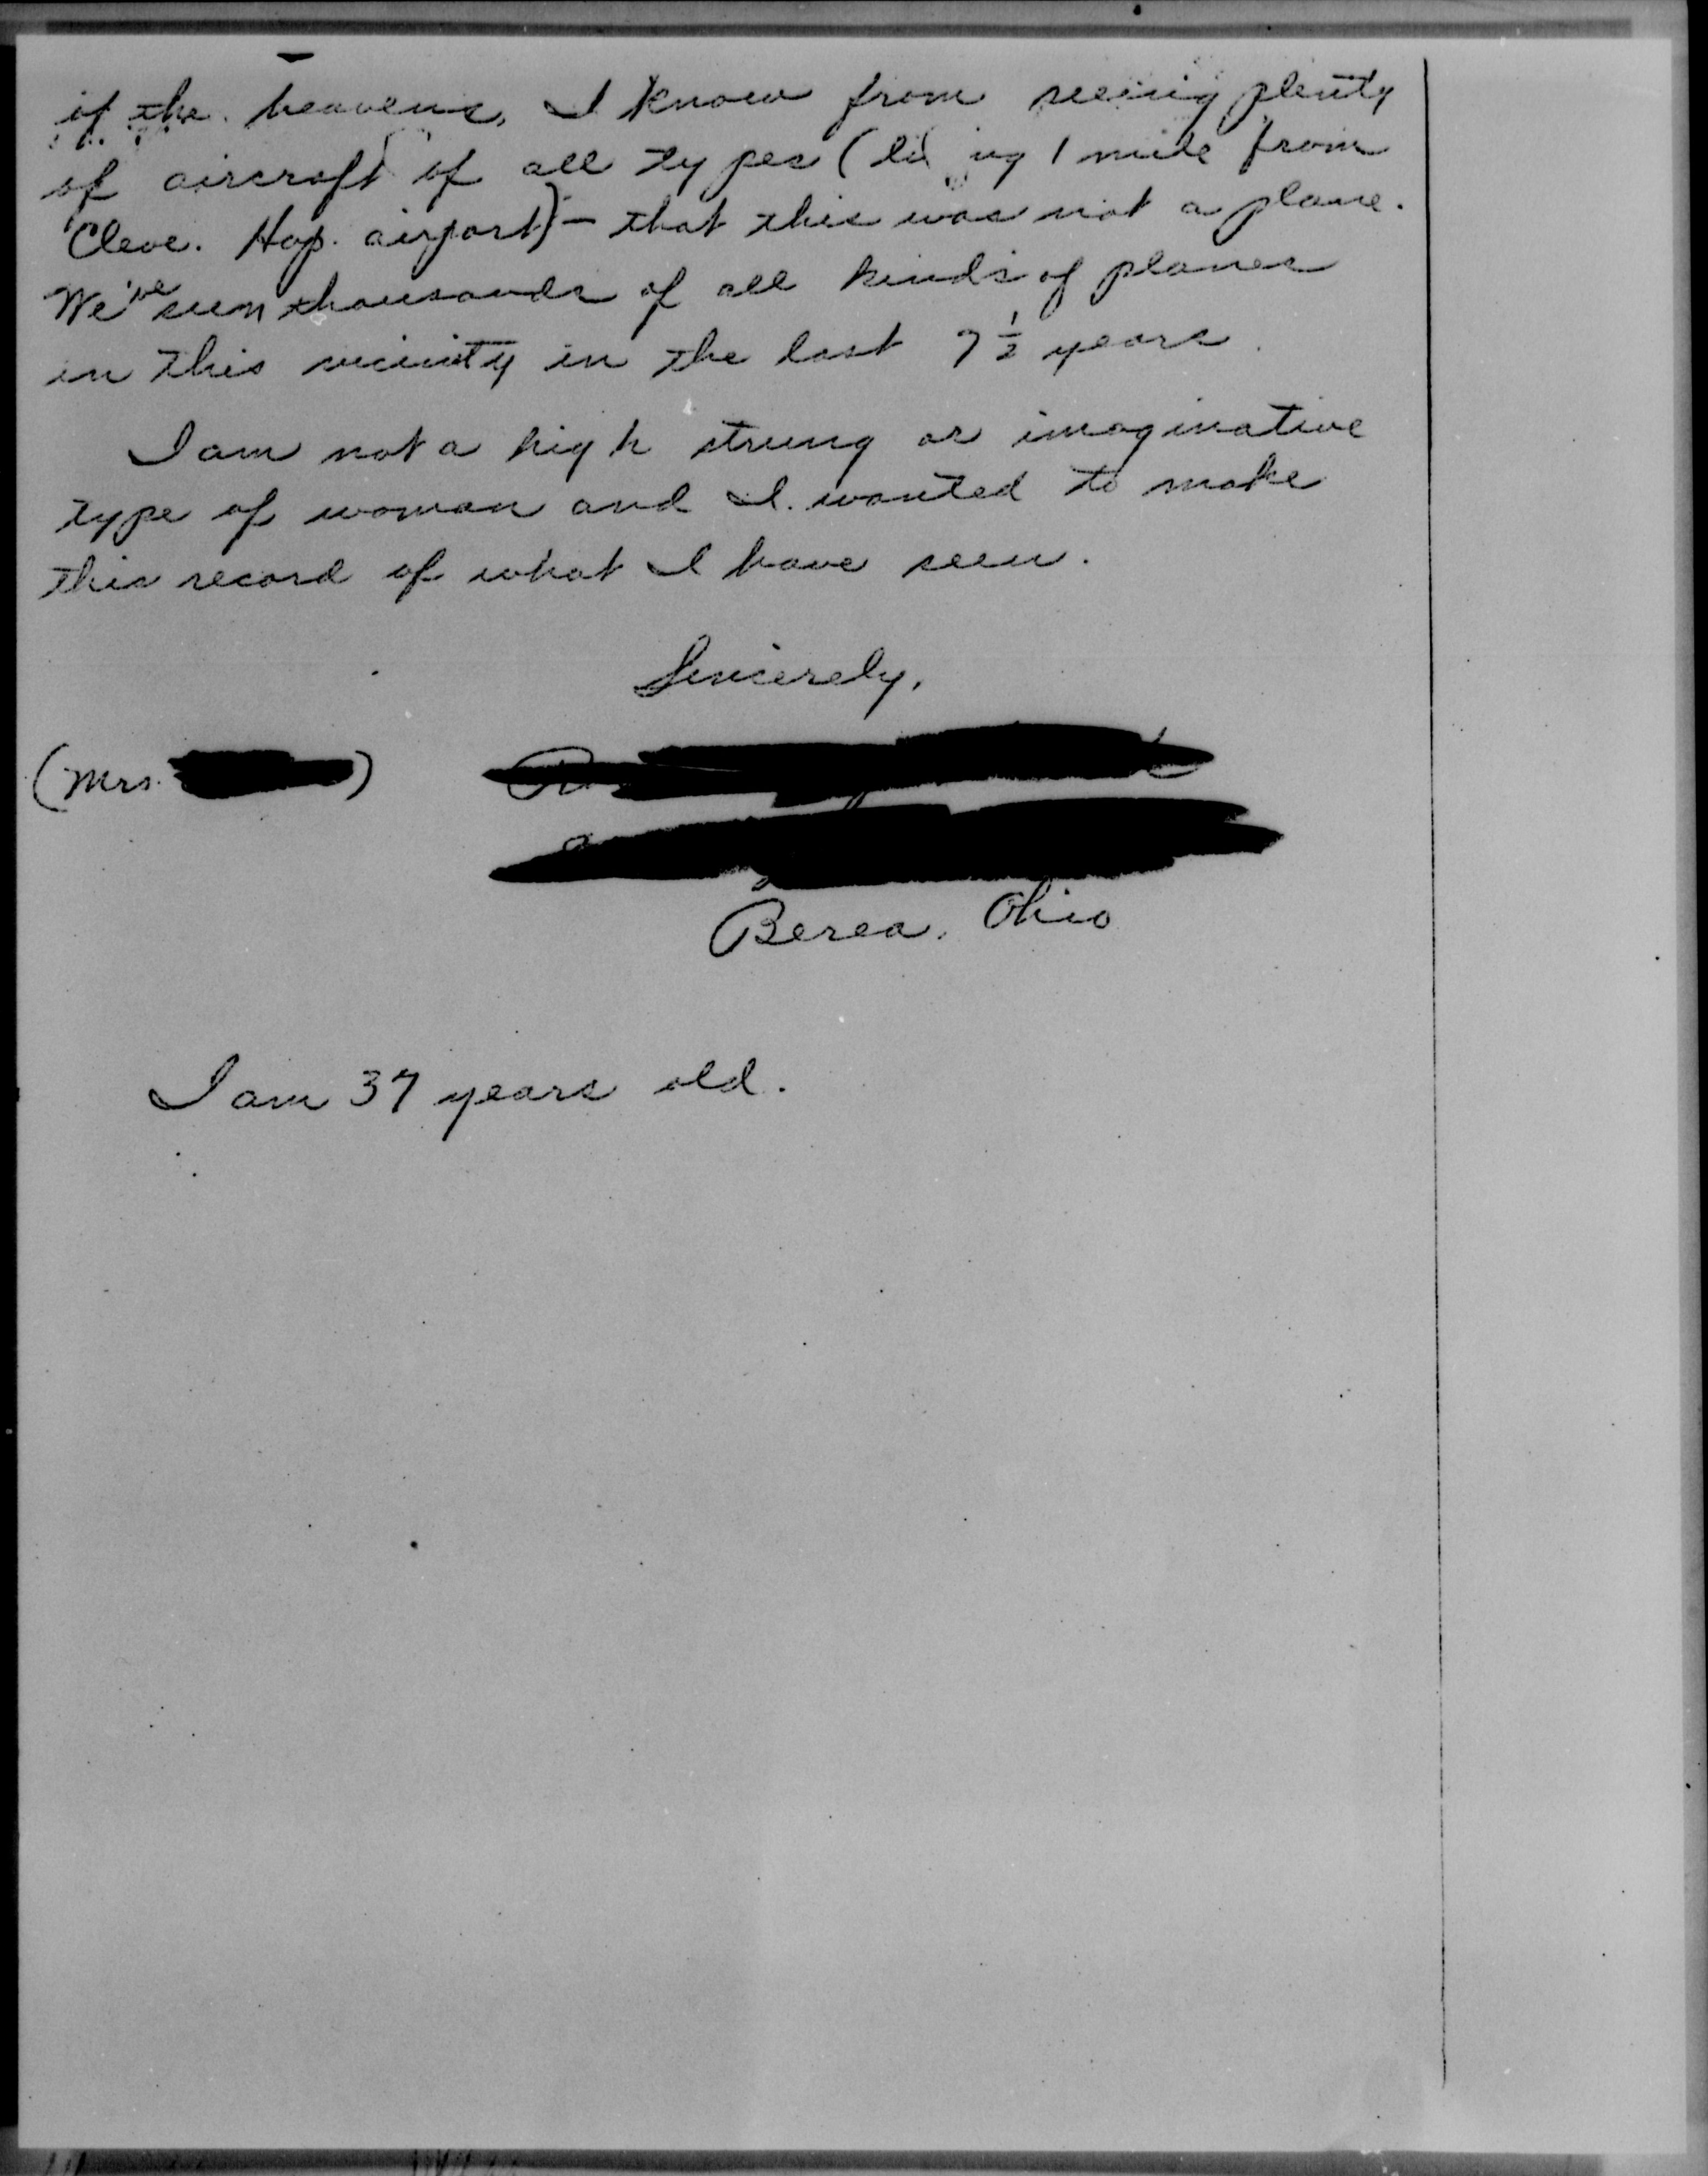 of the heavens, I know from seeing plenty
of aircraft of all types (living 1 mile from
Cleve. Hop. airport) - that this was not a plane.
We've seen thousands of all kinds of planes
in this vicinity in the last 7½ years.
I am not a high strung or imaginative
type of woman and I wanted to make
this record of what I have seen.
Sincerely,
(Mrs. )
Berea, Ohio
I am 37 years old.